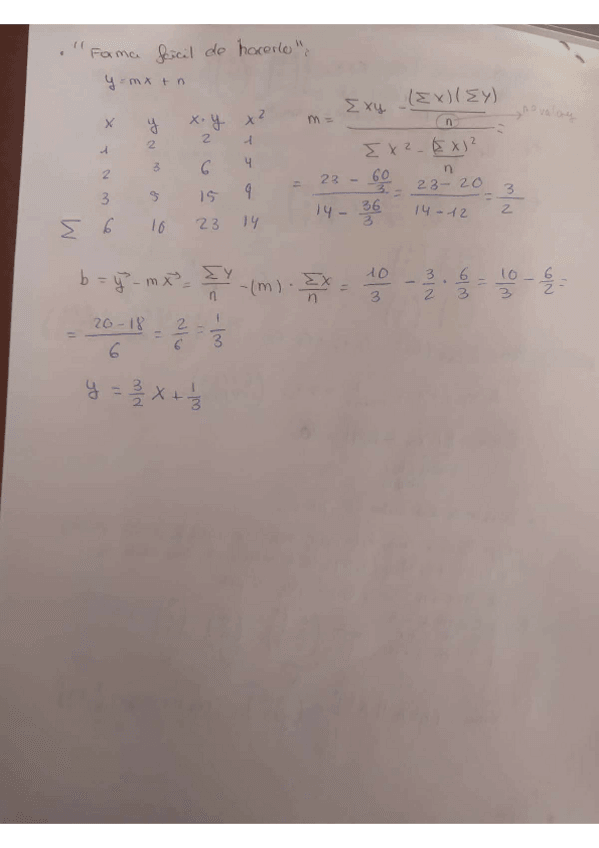 . "Forma fácil de hacerlo":
y = mx + n
x y x·y x²
1 2 2 1
2 3 6 4
3 5 15 9
Σ 6 10 23 14
m = (Σxy - (Σx)(Σy)/n) / (Σx² - (Σx)²/n) =
= (23 - 60/3) / (14 - 36/3) = (23 - 20)/(14 - 12) = 3/2
b = y⃗ - mx⃗ = Σy/n - (m) · Σx/n = 10/3 - 3/2 · 6/3 = 10/3 - 6/2 =
= (20 - 18)/6 = 2/6 = 1/3
y = 3/2 x + 1/3